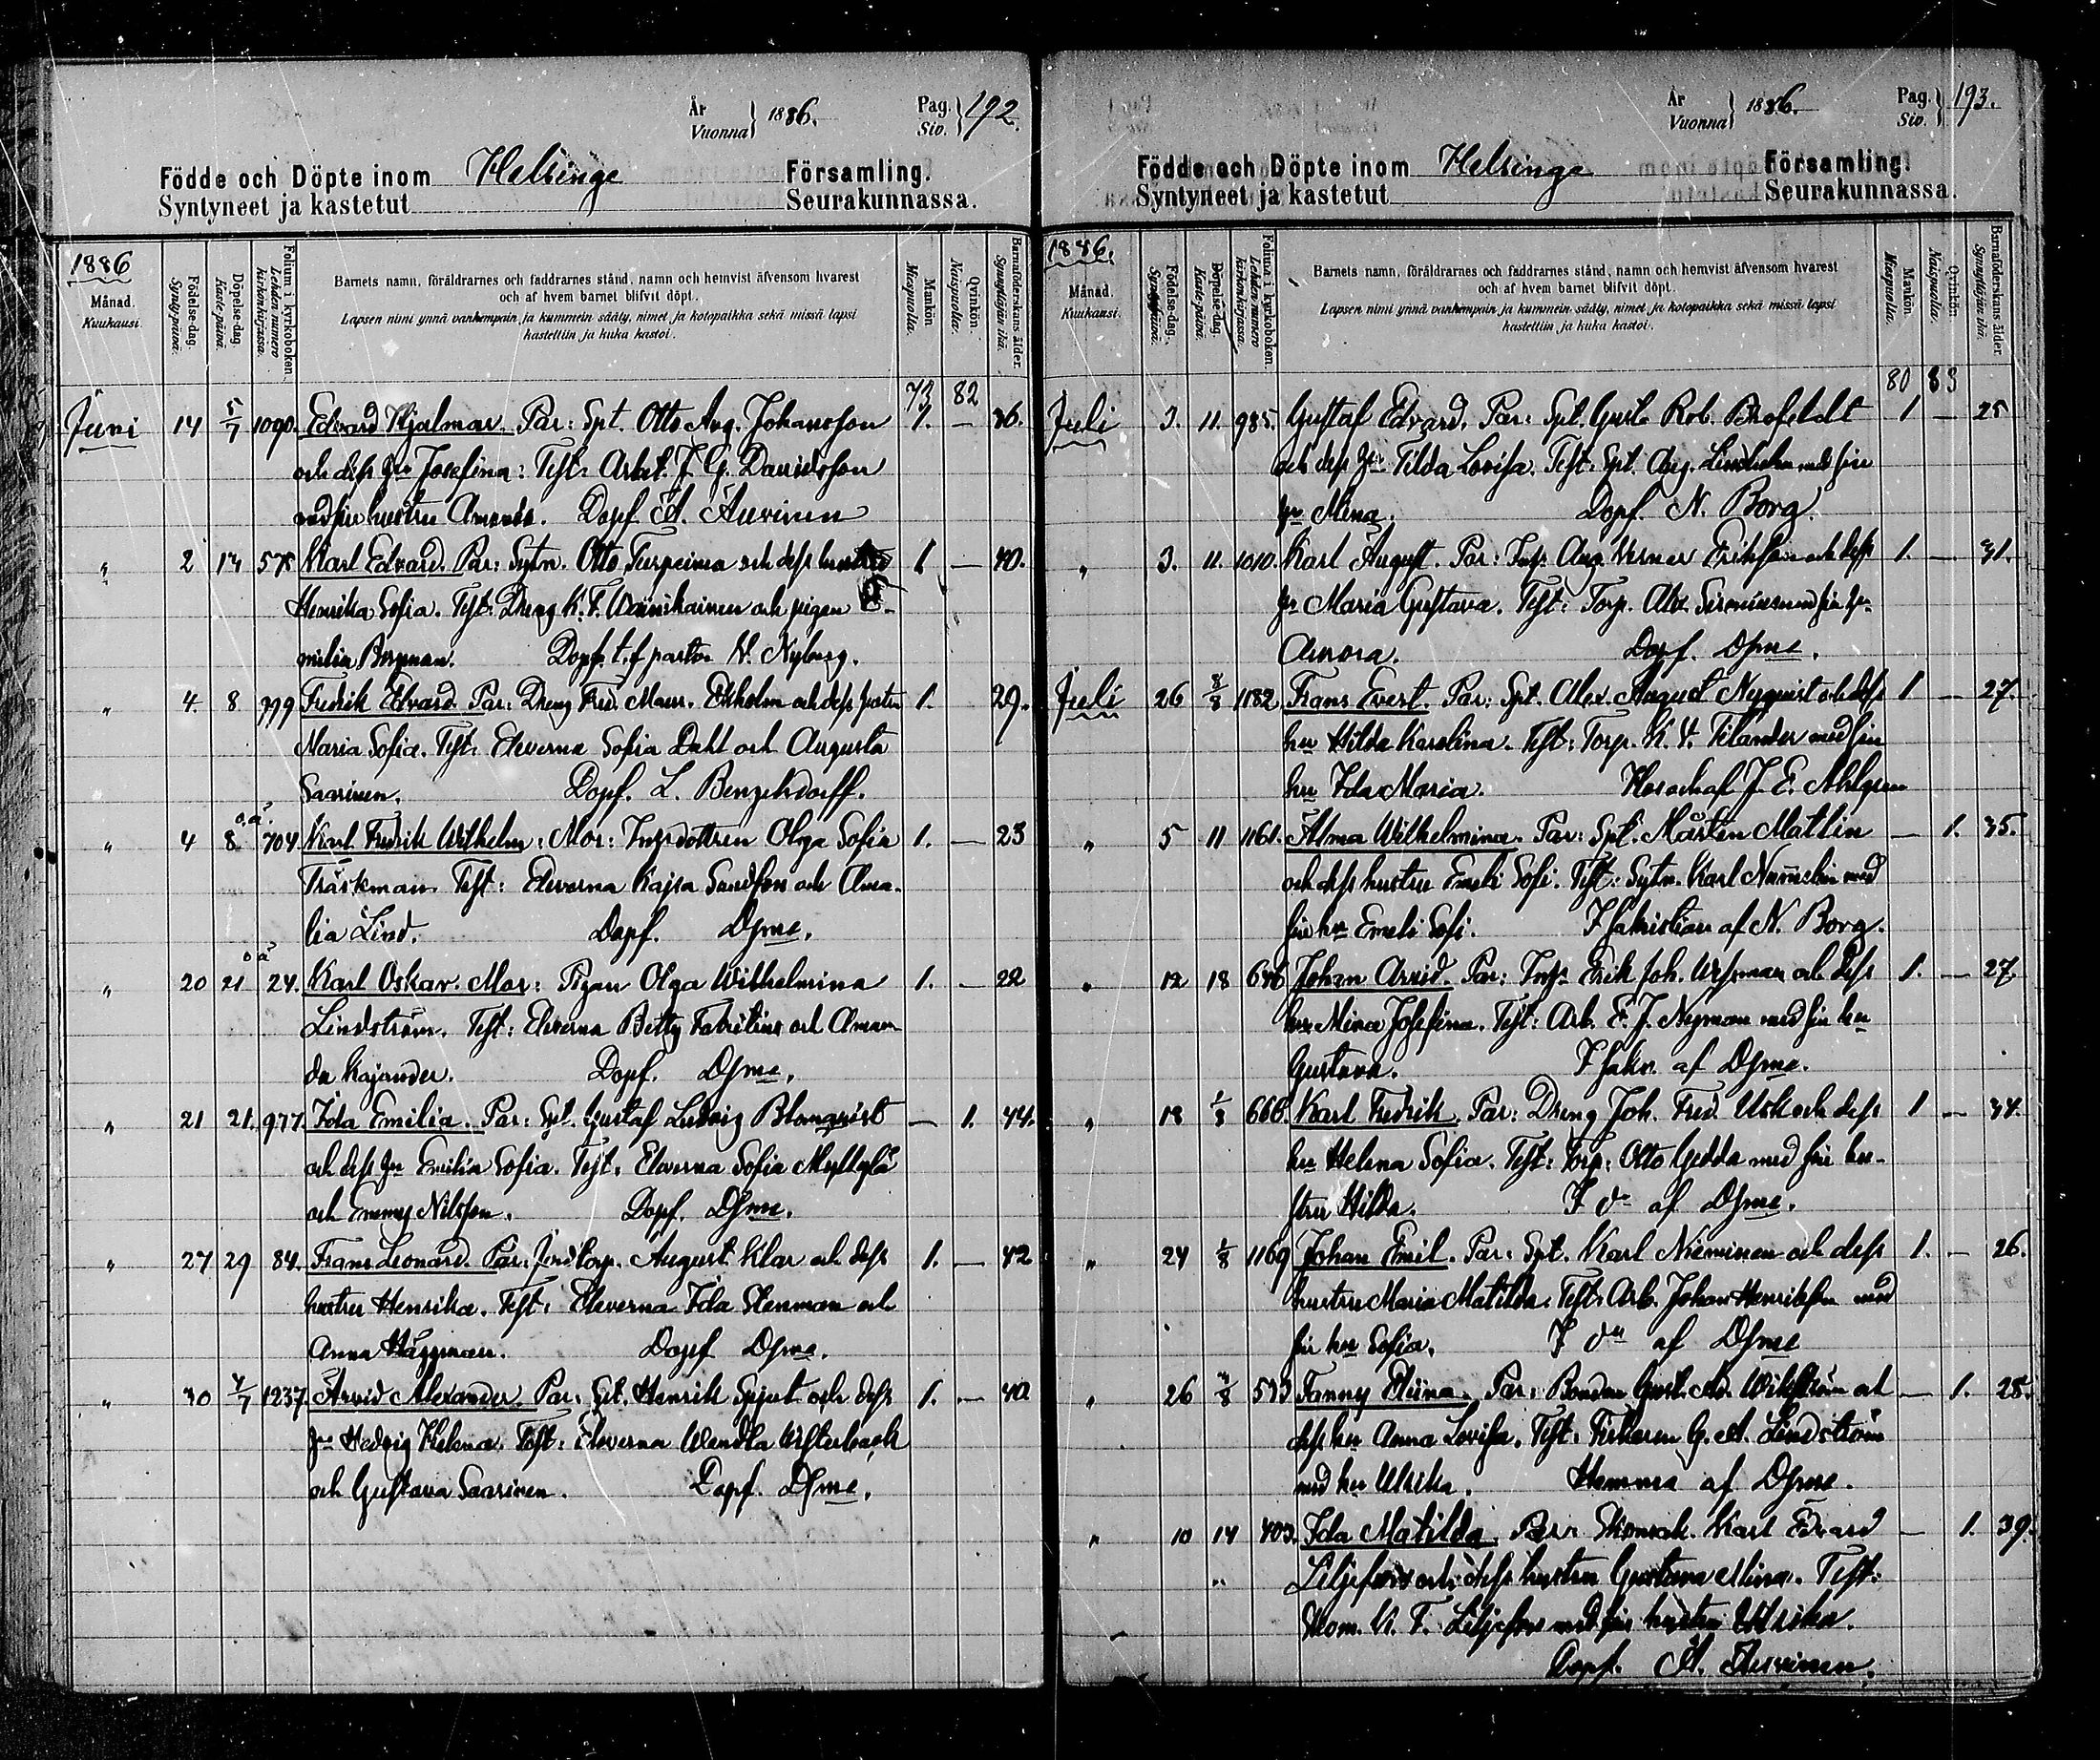 År
Vuonna } 1886. Pag. Siv. } 192.
Födde och Döpte inom Helsinge Församling.
Syntyneet ja kastetut Seurakunnassa.
1886
Månad.
Kuukausi.
Födelse-dag.
Synty-päivä.
Döpelse-dag.
Kaste-päivä.
Folium i kyrkoboken.
Lehden numero kirkonkirjassa.
Barnets namn, föräldrarnes och faddrarnes stånd, namn och hemvist äfvensom hvarest
och af hvem barnet blifvit döpt.
Lapsen nimi ynnä vanhempain ja kummein sääty, nimet ja kotopaikka sekä missä lapsi
kastettiin ja kuka kastoi.
Mankön.
Miespuolia.
Qvinkön.
Naispuolia.
Barnaföderskans ålder.
Synnyttäjän ikä.
73 82
Juni 14 5/7 1090. Edvard Hjalmar. Par: Spt. Otto Aug. Johansson 1. — 36.
och dess hu Josefina: Test: Arbet. J. G. Davidsson
med sin hustru Amanda. Döpf. A. Auvinen
" 2 14 575 Karl Edvard. Par: Sytn. Otto Turpeima och dess hustru 1 — 40.
Henrika Sofia. Test: Dreng K. F. Wäinikainen och pigan E-
milia Bergman. Döpf. t. f. pastor N. Nyberg.
" 4. 8. 999 Fredrik Edvard. Par: Dreng Fred. Maur. Ekholm och dess hustru 1. 29.
Maria Sofia. Test: Eleverna Sofia Dahl och Augusta
Saarinen. Döpf. L. Bengelsdorff.
" 4 8 o.ä. 704. Karl Fredrik Wilhelm: Mor: Inhysdottren Olga Sofia 1. — 23
Träskman. Test: Eleverna Kajsa Sundfors och Ama-
lia Lind. Döpf. Dsme.
" 20 21 o.ä 24. Karl Oskar. Mor: Pigan Olga Wilhelmina 1. — 22
Lindström. Test: Eleverna Betty Fabritius och Aman-
da Kajander. Döpf. Dsme.
" 21 21. 977. Ida Emilia. Par: Spt. Gustaf Ludvig Blomqvist — 1. 44.
och dess hu Emilia Sofia. Test. Eleverna Sofia
och Emmy Nilsson. Döpf. Dsme.
" 27 29 84. Frans Leonard. Par: torp. August Klar och dess 1. — 42
hustru Henrika. Test: Eleverna Ida Stenman och
Anna Häggman. Döpf Dsme.
" 30 4/7 1237. Arvid Alexander. Par: Spt. Henrik Spjut och dess 1. — 40
hu Hedvig Helena. Test: Eleverna Wendla Westerback
och Gustava Saarinen. Döpf. Dsme.
År
Vuonna } 1886. Pag. Siv. } 193.
Födde och Döpte inom Helsinge Församling.
Syntyneet ja kastetut Seurakunnassa.
1886.
Månad.
Kuukausi.
Födelse-dag.
Syntypäivä.
Döpelse-dag.
Kaste-päivä.
Folium i kyrkoboken.
Lehden numero kirkonkirjassa.
Barnets namn, föräldrarnes och faddrarnes stånd, namn och hemvist äfvensom hvarest
och af hvem barnet blifvit döpt.
Lapsen nimi ynnä vanhempain ja kummein sääty, nimet ja kotopaikka sekä missä lapsi
kastettiin ja kuka kastoi.
Mankön.
Miespuolia.
Qvinkön.
Naispuolia.
Barnaföderskans ålder.
Synnyttäjän ikä.
80 83
Juli 3. 11. 985. Gustaf Edvard. Par: Spt. Gust. Rob. Brofeldt 1 — 25
och dess hu Tilda Lovisa. Test: Spt. Aug. Lindholm med sin
hu Mina. Döpf. N. Borg.
" 3. 11. 1010. Karl August. Par: Inh. Aug. Verner Eriksson och dess 1. — 31.
hu Maria Gustava. Test: Torp. Alex. Sirenius med sin hu
Aurora. Döpf. Dsme.
Juli 26 8/8 1182 Frans Evert. Par: Spt. Alex. August Nyqvist och dess 1 — 27.
hu Hilda Karolina. Test: Torp. K. V. Tilander med sin
hu Ida Maria. Klockaren J. E. Ahlgren
" 5 11 1161. Alma Wilhelmina. Par: Spt. Mårten Matlin — 1. 35.
och dess hustru Emeli Sofi. Test: Sytn. Karl Nummelin med
sin hu Emeli Sofi. I sakristian af N. Borg.
" 12 18 646 Johan Arvid. Par: Inh. Erik Joh. Wesman och dess 1. — 27.
hu Mina Josefina. Test: Arb. E. J. Nyman med sin hu
Gustava. I sakr. af Dsme.
" 18 1/8 666. Karl Fredrik. Par: Dreng Joh. Fred. Usk och dess 1 — 34.
hu Helena Sofia. Test: Torp. Otto Gedda med sin hu-
stru Hilda. I do af Dsme.
" 24 1/8 1169 Johan Emil. Par: Spt. Karl Nieminen och dess 1. — 26.
hustru Maria Matilda. Test: Arb. Johan Henriksson med
sin hu Sofia. I do af Dsme
" 26 4/8 593 Fanny Eliina. Par: Bonden Gust. Ad. Wikström och — 1. 28.
dess hu Anna Lovisa. Test: Fiskaren G. A. Lindström
med hu Ulrika. Hemma af Dsme.
" 10 14 403. Ida Matilda. Par: Skomak. Karl Edvard — 1. 39.
Liljefors och dess hustru Gustava Mina. Test:
Skom. K. F. Liljefors med sin hustru Ulrika.
Döpf. A. Auvinen.